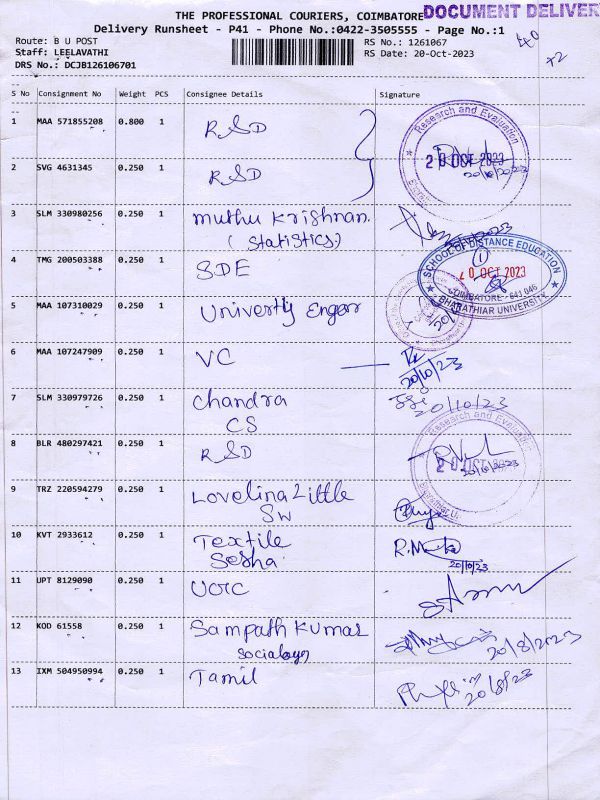 THE PROFESSIONAL COURIERS, COIMBATORE
DOCUMENT DELIVER
Delivery Runsheet - P41 - Phone No.:0422-3505555 - Page No.:1
Route: B U POST
Staff: LEELAVATHI
DRS No.: DCJB126106701
RS No.: 1261067
RS Date: 20-Oct-2023
S No Consignment No Weight PCS Consignee Details Signature
1 MAA 571855208 0.800 1 RSD
Research and Evaluation
20 OCT 2023
20/10/2023
2 SVG 4631345 0.250 1 RSD
3 SLM 330980256 0.250 1 Muthu Krishnan.
(Statistics)
4 TMG 200503388 0.250 1 SDE
SCHOOL OF DISTANCE EDUCATION
OCT 2023
COIMBATORE - 641 046
BHARATHIAR UNIVERSITY
5 MAA 107310029 0.250 1 Univertiy Engerr
6 MAA 107247909 0.250 1 VC
20/10/23
7 SLM 330979726 0.250 1 Chandra
CS
20/10/23
8 BLR 480297421 0.250 1 RSD
Research and Evaluation
20 OCT 2023
20/10/2023
9 TRZ 220594279 0.250 1 Lovelina Little
SW
10 KVT 2933612 0.250 1 Textile
Sesha
20/10/23
11 UPT 8129090 0.250 1 UCIC
12 KOD 61558 0.250 1 Sampath Kumar
Sociology
20/8/2023
13 IXM 504950994 0.250 1 Tamil
20/8/23